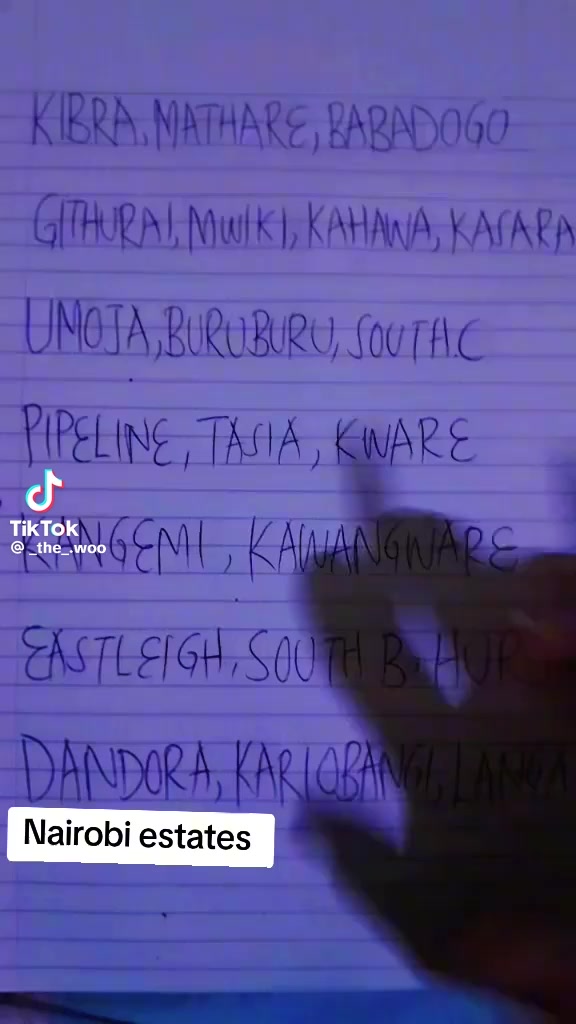 KIBRA, MATHARE, BABADOGO
GITHURAI, MWIKI, KAHAWA, KASARA
UMOJA, BURUBURU, SOUTH.C
PIPELINE, TASIA, KWARE
TikTok
@_the_.woo
KANGEMI, KAWANGWARE
EASTLEIGH, SOUTH B, HUR
DANDORA, KARIOBANGI, LANGA
Nairobi estates